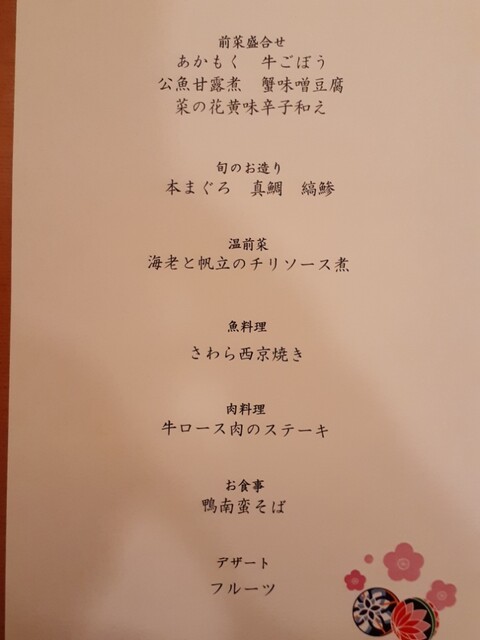 前菜盛合せ
あかもく　牛ごぼう
公魚甘露煮　蟹味噌豆腐
菜の花黄味辛子和え
旬のお造り
本まぐろ　真鯛　縞鯵
温前菜
海老と帆立のチリソース煮
魚料理
さわら西京焼き
肉料理
牛ロース肉のステーキ
お食事
鴨南蛮そば
デザート
フルーツ